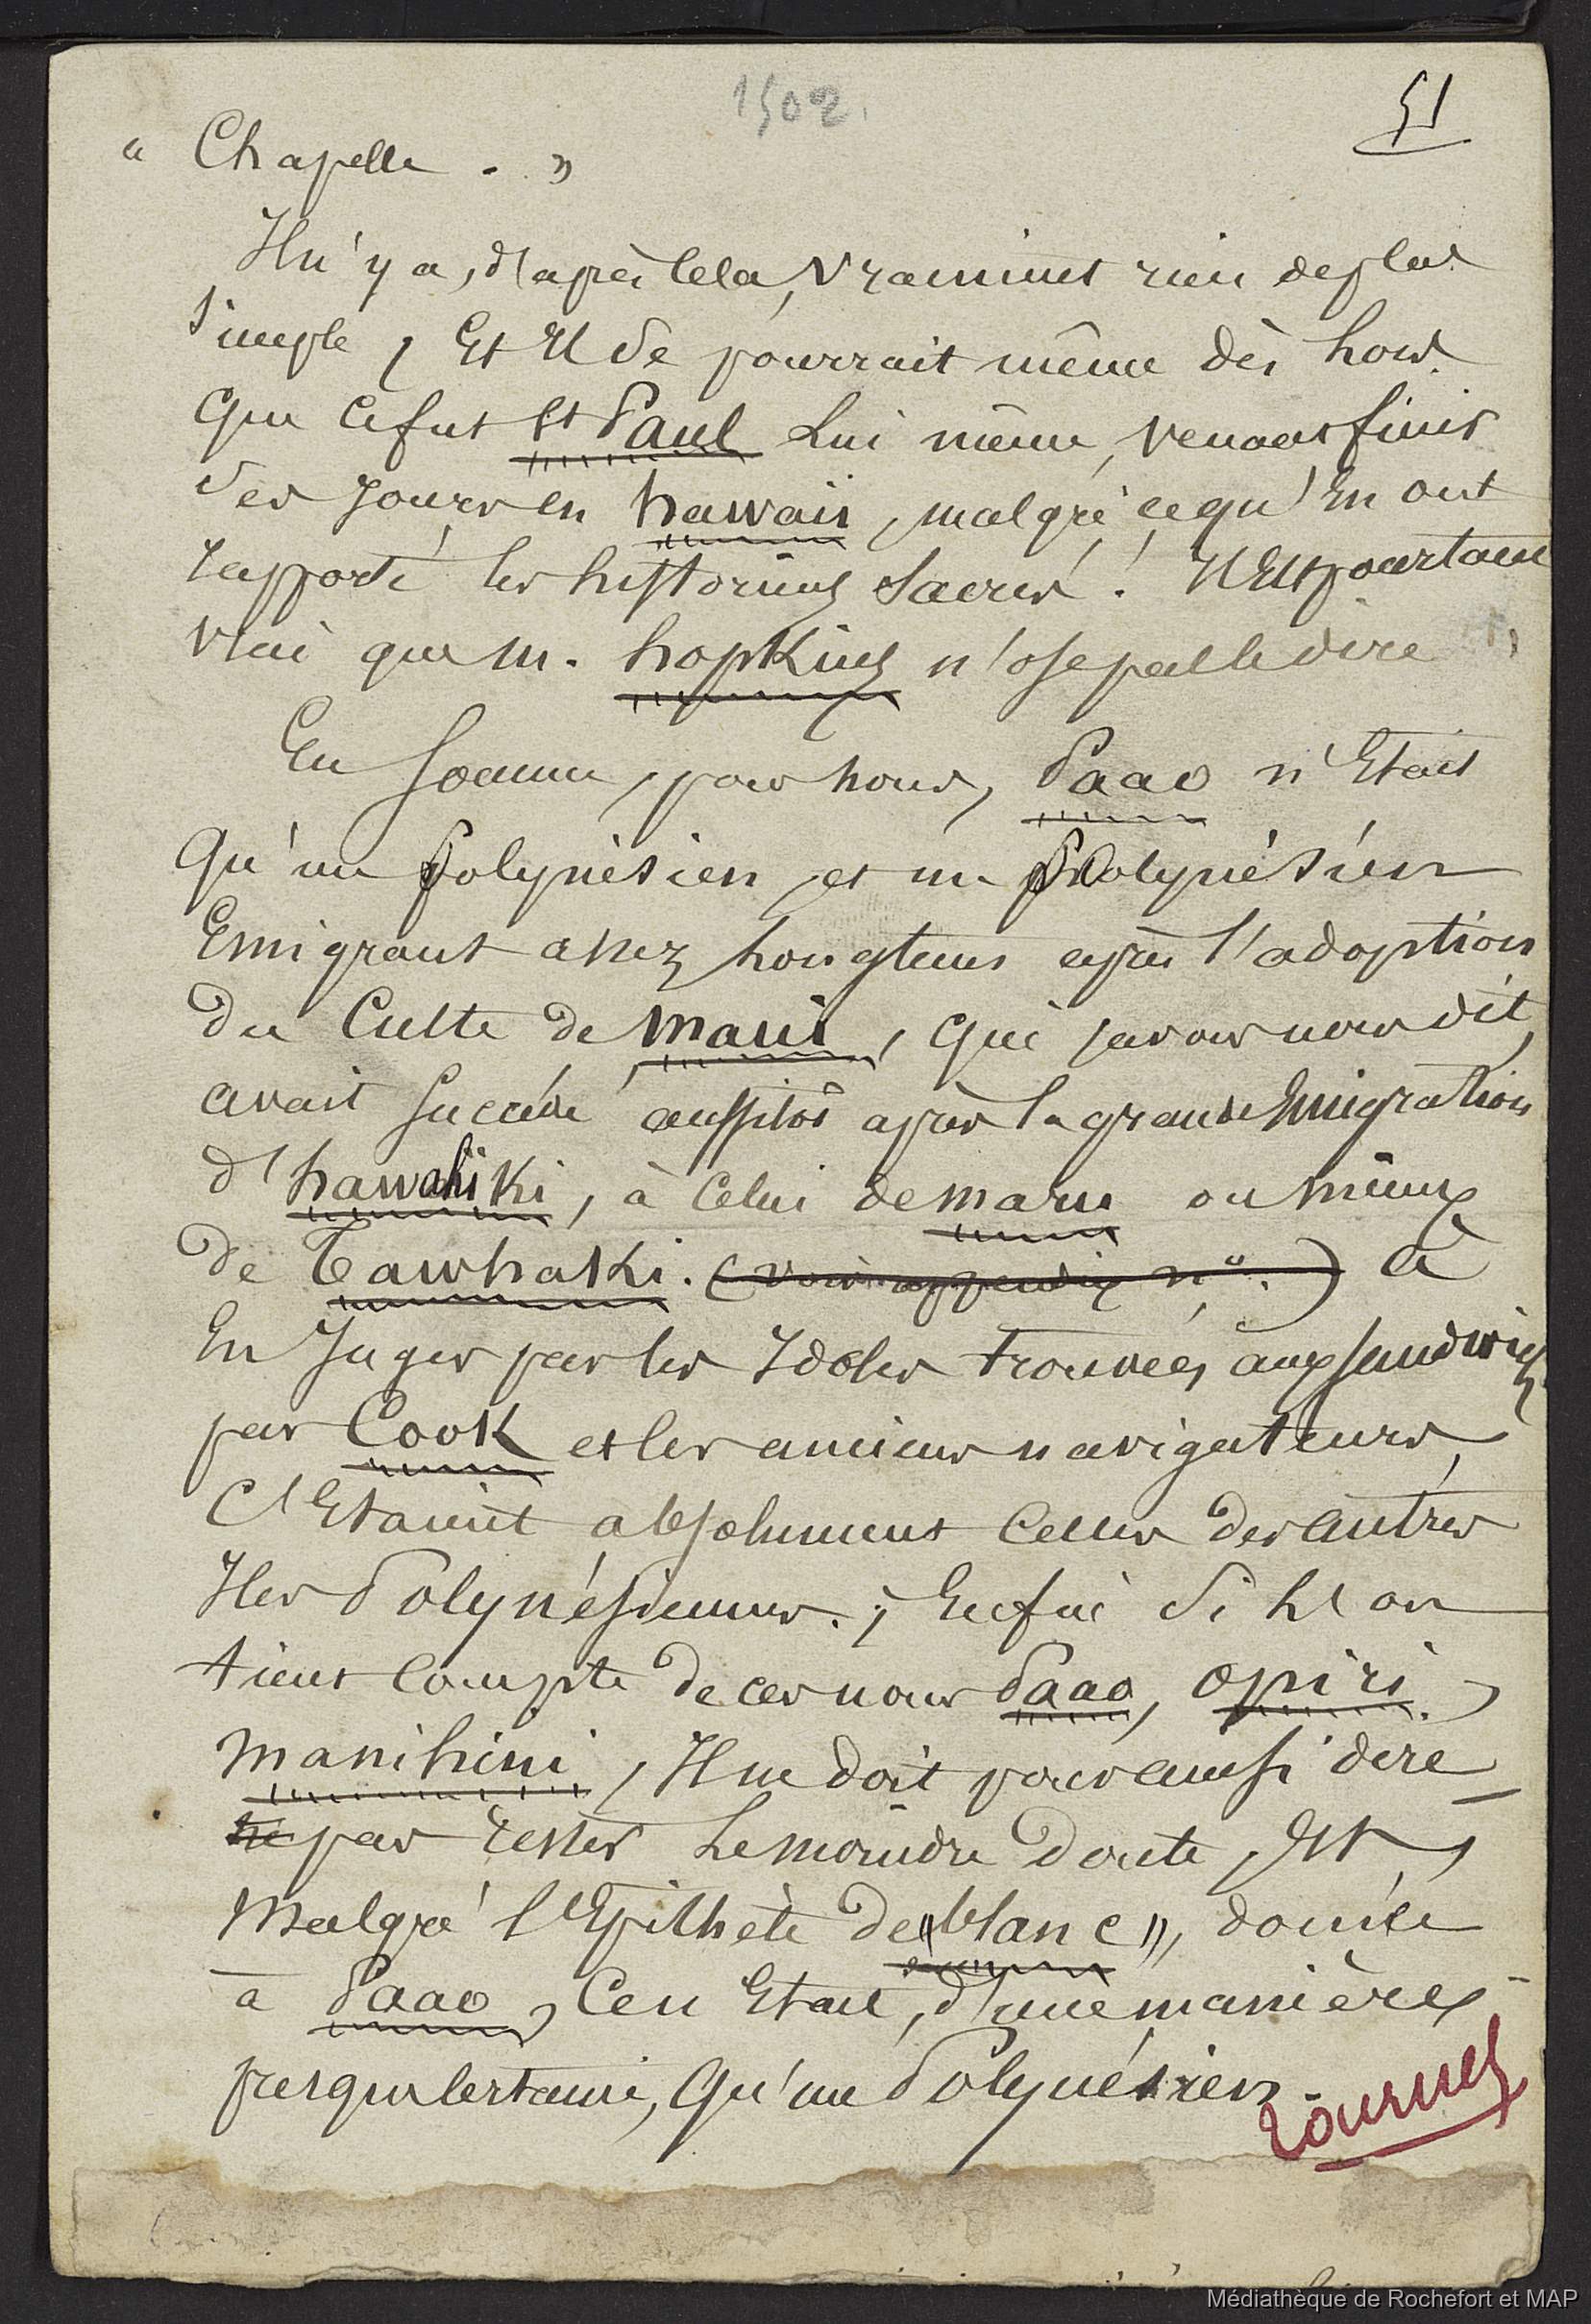 1502.
51
" Chapelle . "
Il n'y a, d'après cela, vraiment rien de plus
simple, Et Il se pourrait même dès lors
que ce fut St Paul Lui même, venant finir
ses jours en hawaii, malgré ce qu'En ont
rapporté les historiens Sacrés ! Il Est pourtant
vrai que M. hopkins n'ose pas le dire
En somme, pour nous, Paao n'Etait
qu'un Polynésien, et un Polynésien
Emigrant assez longtems après l'adoption
du Culte de Maui, qui, avons nous dit,
avait succédé aussitôt après la grande Emigration
d'hawahiki, à celui de maru ou mieux
de Tawhaki. (voir appendix n°. ) à
En Juger par les Idoles trouvées aux Sandwich
par Cook et les anciens navigateurs,
C'Etaient absolument celles des autres
Iles Polynésiennes. ; Enfin Si L'on
tient compte de ces noms Paao, opiri,
manihini, Il ne doit pour ainsi dire
ne pas rester Le moindre doute, Et,
Malgré l'Epithète de "blanc", donnée
à Paao, Ce n'Etait, d'une manière
presque certaine, Qu'un Polynésien.
Tournez
Médiathèque de Rochefort et MAP